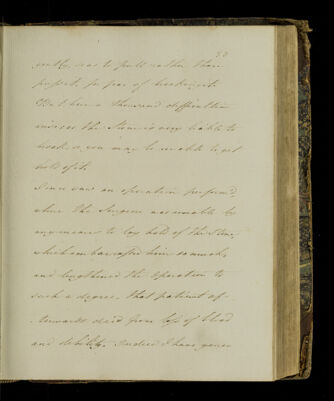 gently, was to pull rather than
for fear of breaking it.
But here a thousand difficulties
the Stone is very liable to
break & you may be unable to get
hold of it.
I once saw an operation perform'd,
where the Surgeon was unable by
any means to lay hold of the Stone,
which embarrassed him so much,
and lengthened the Operation to
such a degree, that patient af-
terwards died from loss of blood
and debility. Indeed I have